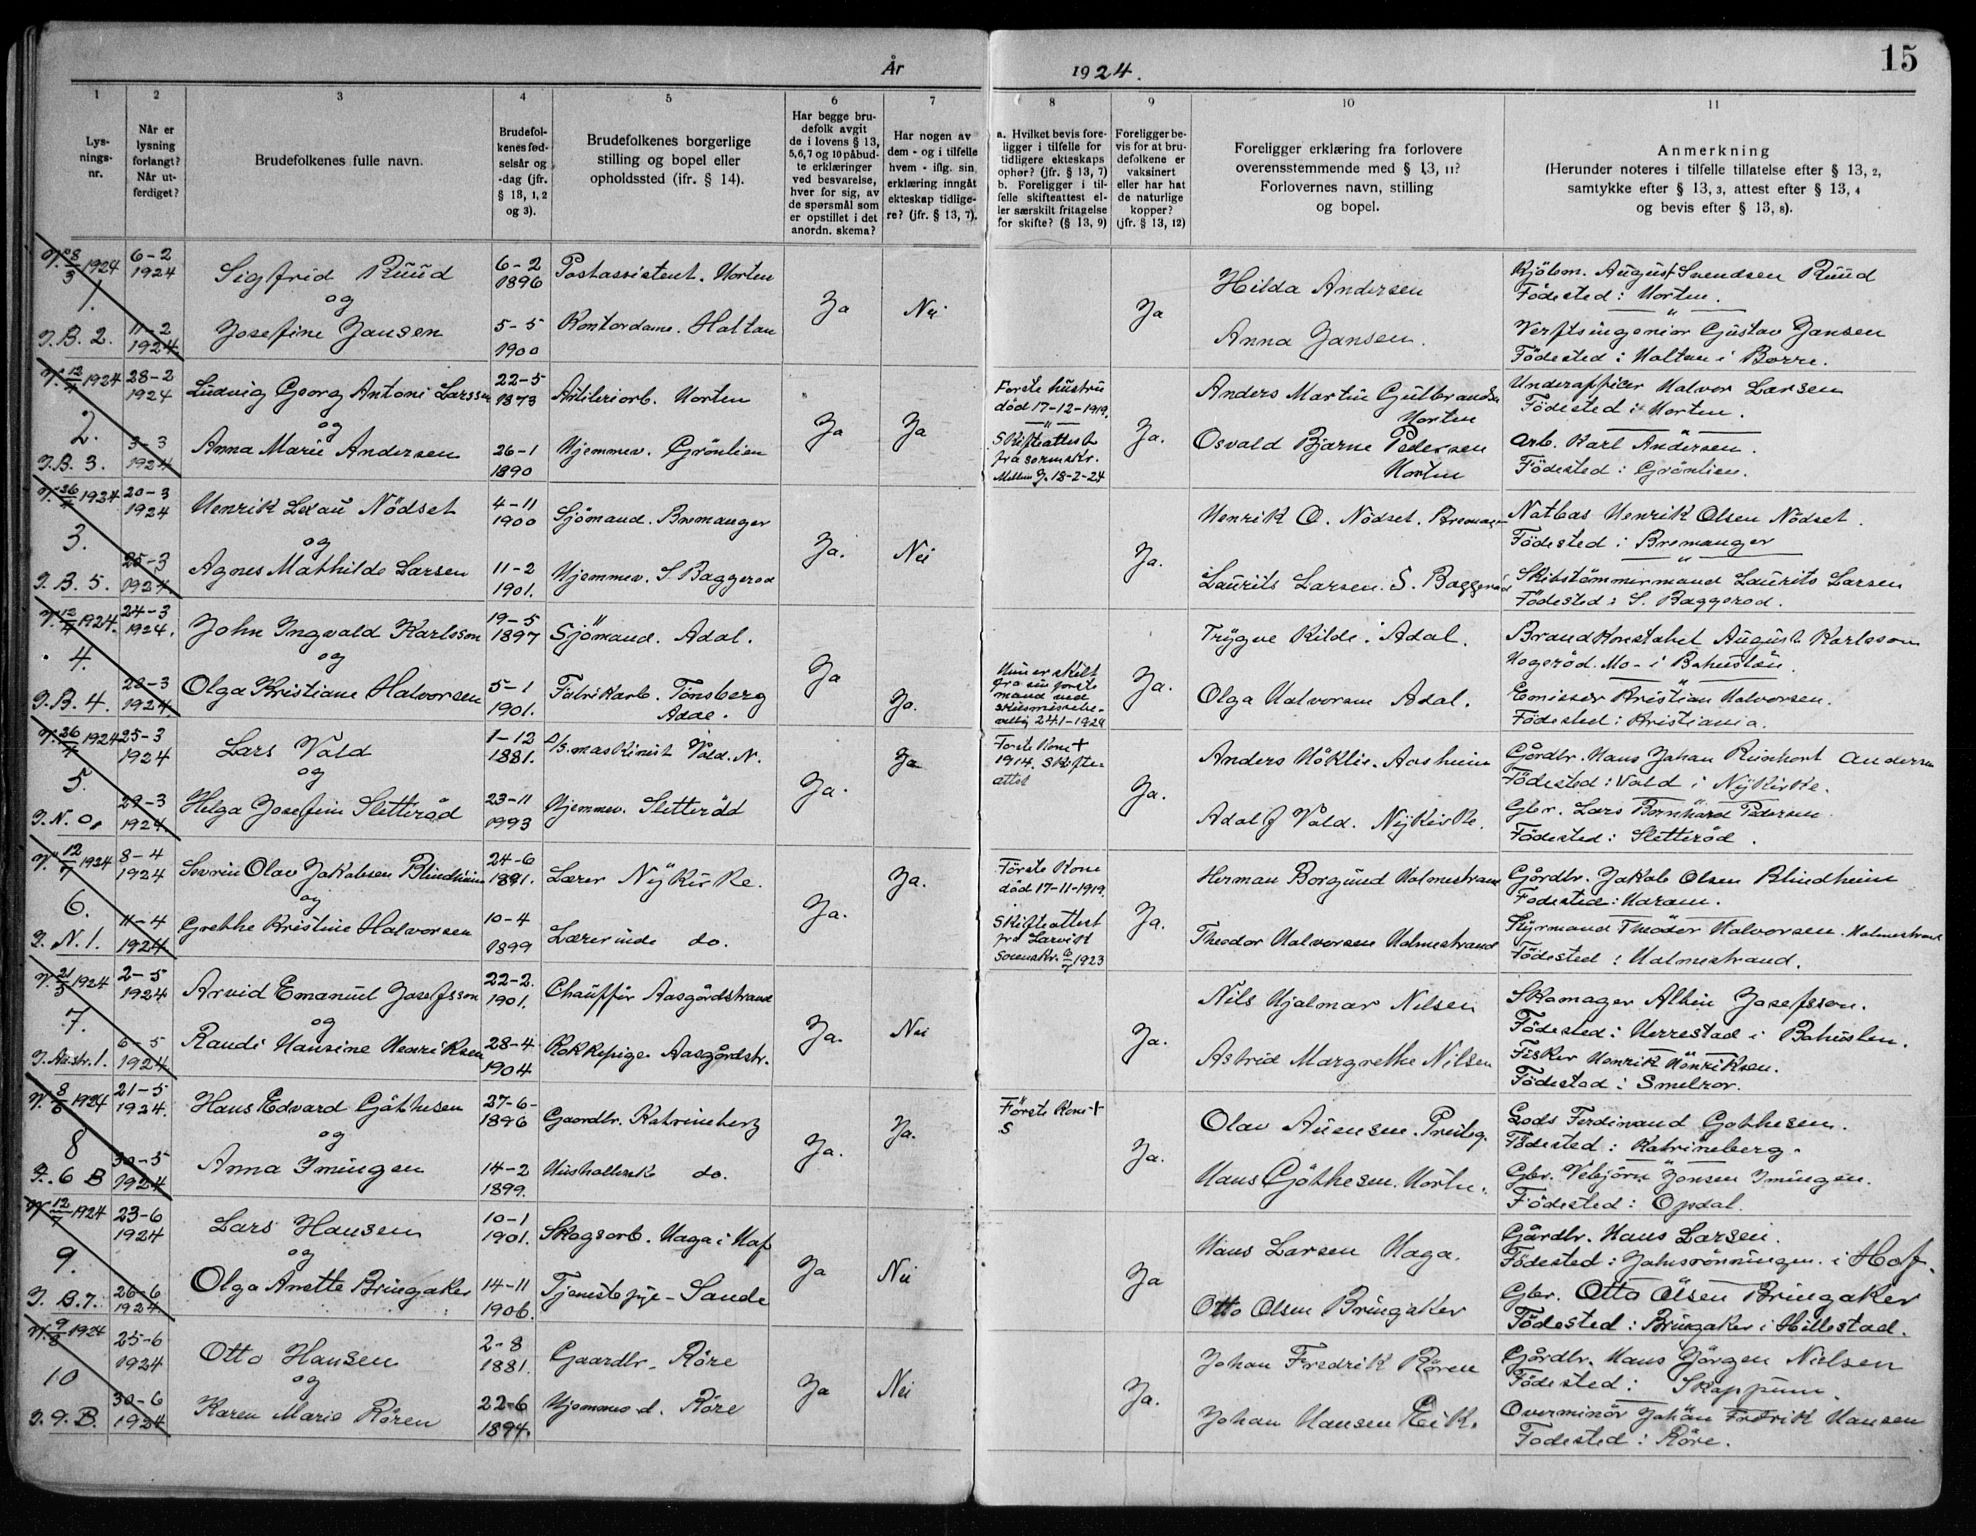 År 1924.
15
1 2 3 4 5 6 7 8 9 10 11
Lys-
nings-
nr.
Når er
lysning
forlangt?
Når ut-
ferdiget?
Brudefolkenes fulle navn.
Brudefol-
kenes fød-
selsår og
-dag (jfr.
§ 13, 1, 2
og 3).
Brudefolkenes borgerlige
stilling og bopel eller
opholdssted (ifr. § 14).
Har begge bru-
defolk avgit
de i lovens § 13,
5,6,7 og 10 påbud-
te erklæringer
ved besvarelse,
hver for sig, av
de spørsmål som
er opstillet i det
anordn. skema?
Har nogen av
dem - og i tilfelle
hvem - iflg. sin
erklæring inngåt
ekteskap tidlige-
re? (jfr. § 13, 7).
a. Hvilket bevis fore-
ligger i tilfelle for
tidligere ekteskaps
ophør? (jfr. § 13, 7)
b. Foreligger i til-
felle skifteattest el-
ler særskilt fritagelse
for skifte? (§ 13, 9)
Foreligger be-
vis for at bru-
defolkene er
vaksinert
eller har hat
de naturlige
kopper?
(jfr. § 13, 12)
Foreligger erklæring fra forlovere
overensstemmende med § 13, 11?
Forlovernes navn, stilling
og bopel.
Anmerkning
(Herunder noteres i tilfelle tillatelse efter § 13, 2,
samtykke efter § 13, 3, attest efter § 13, 4
og bevis efter § 13, 8).
V. 8/3 1924
1.
J.B. 2.
6-2
1924
11-2
1924.
Sigfrid Ruud
og
Josefine Jansen
6-2
1896
5-5
1900
Postassistent. Horten
Kontordame. Holtan
Ja
Nei
Ja
Hilda Andersen
Anna Jansen.
Kjölm. August Svendsen Ruud
Födested: Horten.
Verftsingeniör Gustav Jansen
Födested: Holtan i Borre.
V. 12/4 1924
2.
J.B. 3.
28-2
1924
3-3
1924
Ludvig Georg Antoni Larssen
og
Anna Marie Andersen
22-5
1873
26-1
1890
Artilleriorb. Horten
Hjemmev. Grönlien
Ja
Ja
Forste hustru
död 17-12-1919.
Skifteattest
fra sorenskr.
18-2-24
Ja.
Anders Martin Gulbrandsen
Horten
Osvald Bjarne Pedersen
Horten
Underofficer Halvor Larsen
Födested: Horten.
Arb. Karl Andersen.
Födested: Grönlien.
V. 26/4 1924
3.
J.B. 5.
20-3
1924
25-3
1924
Henrik Lexau Nödset
og
Agnes Mathilde Larsen
4-11
1900
11-2
1901.
Sjömand. Bremanger
Hjemmev. S. Baggerod
Ja.
Nei
Ja.
Henrik O. Nödset. Bremanger
Laurits Larsen. S. Baggeröd
Notbas Henrik Olsen Nödset.
Födested i Bremanger
Skibstömmermand Laurits Larsen
Födested: S. Baggerod.
V. 12/4 1924.
4.
J.B. 4.
24-3
1924.
28-3
1924.
John Ingvald Karlsson
og
Olga Kristiane Halvorsen
19-5
1897
5-1
1901.
Sjömand. Adal.
Fabrikarb. Tönsberg
Adal.
Ja
Ja.
Hun er skilt
fra sin forste
mand ved
24.1-1924
Ja.
Trygve Kilde. Adal.
Olga Halvorsen Adal.
Brandkonstabel August Karlsson
Hogeröd. Mo- i Bohuslän.
Emissær Kristian Halvorsen.
Födested: Kristiania.
V. 26/4 1924
5.
J.N. 0.
25-3
1924
29-3
1924.
Lars Vold
og
Helga Josefine Sletteröd
1-12
1881.
23-11
1993
D/S. maskinist Vold. N.
Hjemmev. Sletteröd
Ja.
Ja
Forste Kone +
1914. Skifte-
attest
Ja.
Anders Håklie. Aasheim
Adolf Vold. Nykirke.
Gårdbr. Hans Johan Reinhart Andersen
Födested: Vold i Nykirke.
Gbr. Lars Bernhard Pedersen
Födested: Sletteröd.
V. 12/7 1924
6.
J.N. 1.
8-4
1924
11-4
1924
Severin Olav Jakobsen Blindheim
og
Grethe Kristine Halvorsen
24-6
1891.
10-4
1899
Lærer Nykirke.
Lærerinde do.
Ja.
Ja.
Förste Kone
död 17-11-1919.
Skifteattest
fra Larvik
Sorenskr. 6/7 1923
Ja.
Herman Borgund Holmestrand
Theodor Halvorsen Holmestrand
Gårdbr. Jakob Olsen Blindheim
Fodested: Haram.
Styrmand Theodor Halvorsen. Holmestrand
Födested: Holmestrand.
V. 21/5 1924
7.
J. Aasstr. 1.
2-5
1924
6-5
1924
Arvid Emanuel Josefsson
og
Randi Hansine Henriksen
22-2.
1901.
28-4
1904
Chaufför Aasgårdstrand
Kokkepige Aasgårdstr.
Ja.
Nei
Ja.
Nils Hjalmar Nilsen
Astrid Margrethe Nilsen
Skomager Albin Josefsson.
Födested: Herrestad i Bohuslen.
Fisker Henrik Henriksen.
Födested: Smelror.
V. 8/6 1924
8
F. 6 B
21-5
1924.
30-5
1924
Hans Edvard Göthesen
og
Anna Imingen
27-6-
1896
14-2
1899.
Gaardbr. Katrineberg
Husholdersk do.
Ja.
Ja.
Förste Kone +
S
Ja.
Olav Auensen. Presteg.
Hans Göthesen. Horten.
Gods Ferdinand Gothesen.
Födested: Katrineberg.
Gbr. Vebjörn Jonsen Imingen.
Födested: Opdal.
V 12/7 1924
9.
J. B.7.
23-6
1924
26-6
1924.
Lars Hansen
og
Olga Anette Bringaker
10-1
1901.
14-11
1906.
Skogsarb. Haga i Hof
Tjenestepige - Sande
Ja
Nei
Ja
Hans Larsen Haga.
Otto Olsen Bringaker
Gårdbr. Hans Larsen.
Födested: Johnsrönningen. i Hof.
Gbr. Otto Olsen Bringaker
Födested: Bringaker i Hillestad.
V. 9/8 1924
10
J. 9. B.
25-6
1924
30-6
1924
Otto Hansen
og
Karen Marie Rören
2-8
1881.
22-6
1894.
Gaardbr. Röre
Hjemmev d. Röre
Ja
Nei
Ja.
Johan Fredrik Rören
Johan Hansen Eik.
Gårdbr. Hans Jörgen Nielsen
Födested: Skoppum.
Overminör Johan Fredrik Hansen
Fodested: Röre.